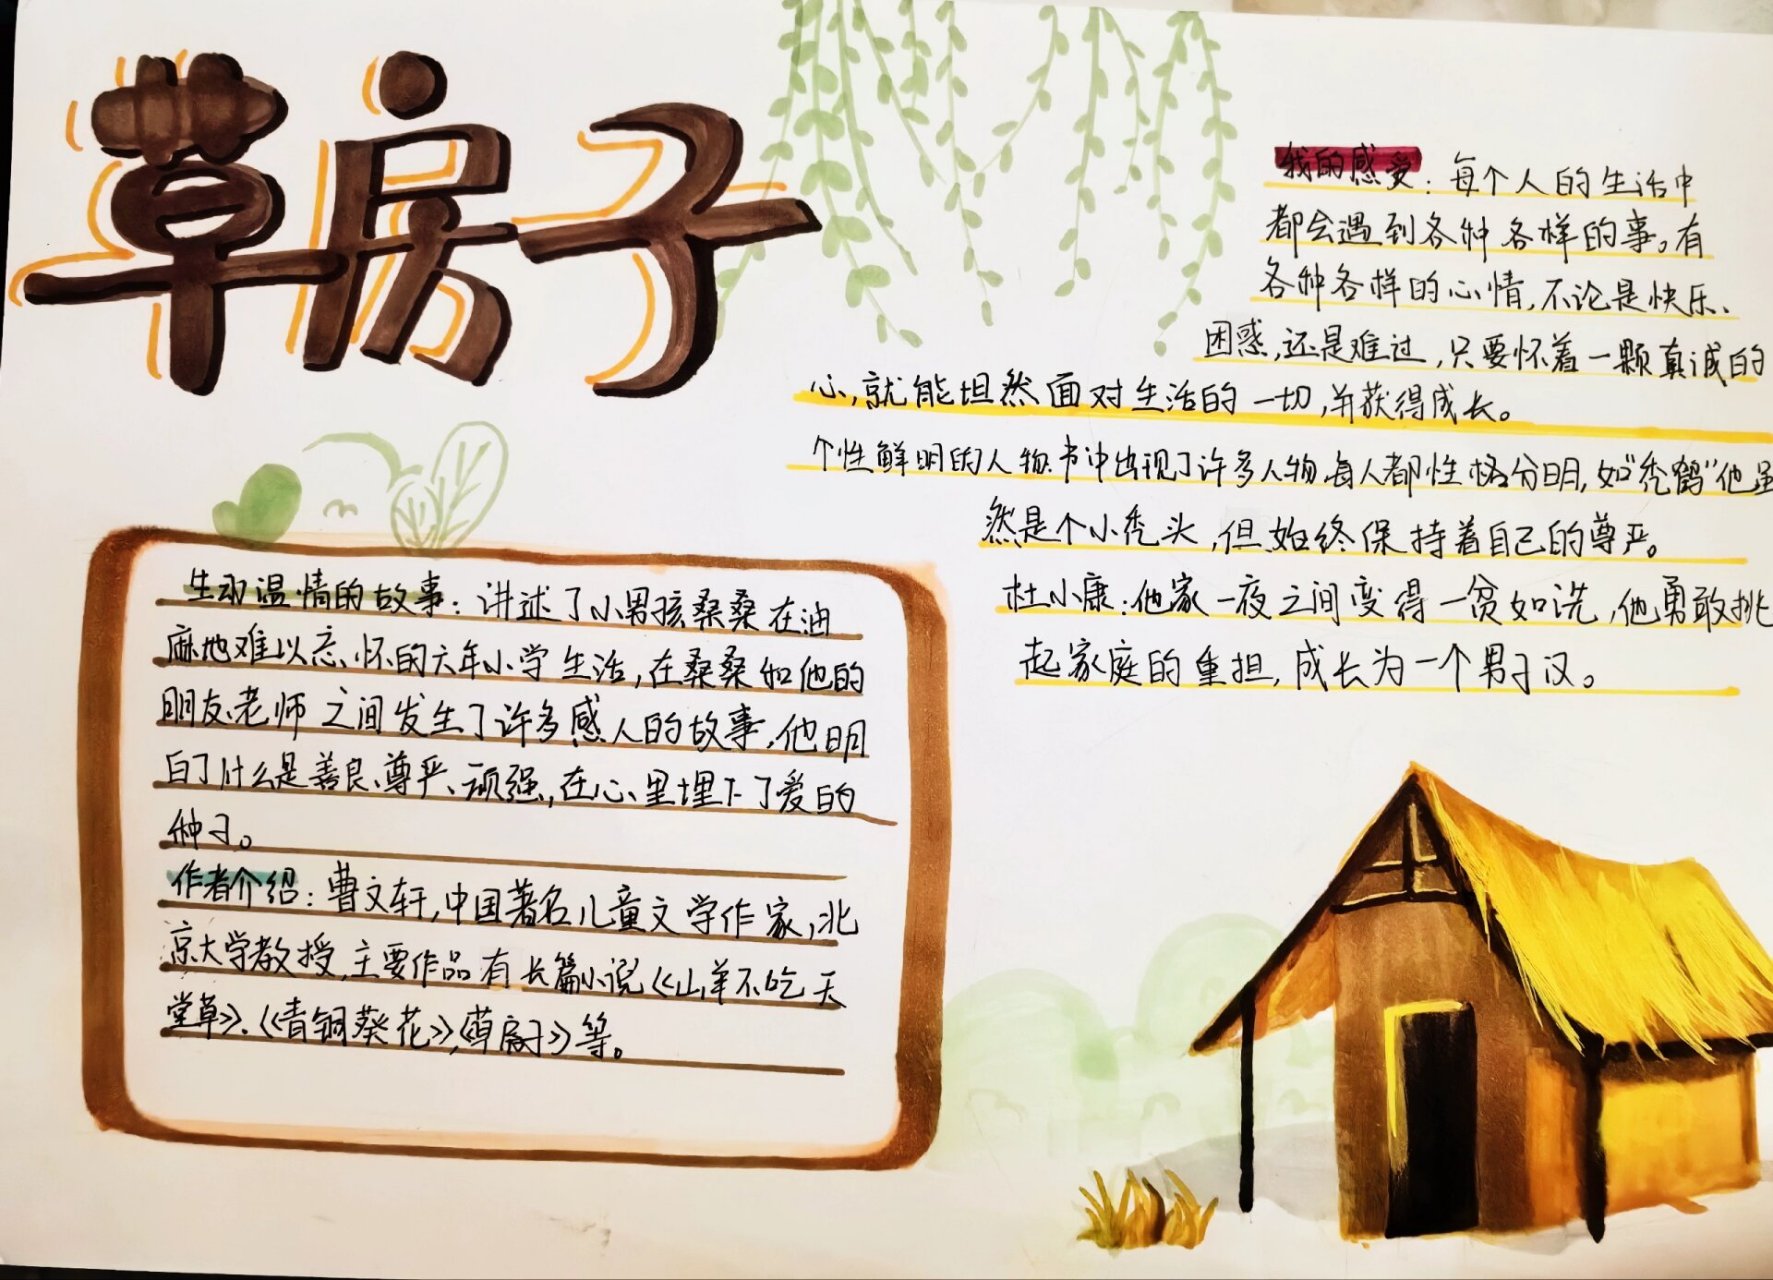 草房子
我的感受：每个人的生活中
都会遇到各种各样的事。有
各种各样的心情，不论是快乐、
困惑，还是难过，只要怀着一颗真诚的
心，就能坦然面对生活的一切，并获得成长。
个性鲜明的人物：书中出现了许多人物，每人都性格分明，如“秃鹤”他虽
然是个小秃头，但始终保持着自己的尊严。
杜小康：他家一夜之间变得一贫如洗，他勇敢挑
起家庭的重担，成长为一个男子汉。
生动温情的故事：讲述了小男孩桑桑在油
麻地难以忘怀的六年小学生活，在桑桑和他的
朋友、老师之间发生了许多感人的故事，他明
白了什么是善良、尊严、顽强，在心里埋下了爱的
种子。
作者介绍：曹文轩，中国著名儿童文学作家，北
京大学教授，主要作品有长篇小说《山羊不吃天
堂草》、《青铜葵花》，《草房子》等。